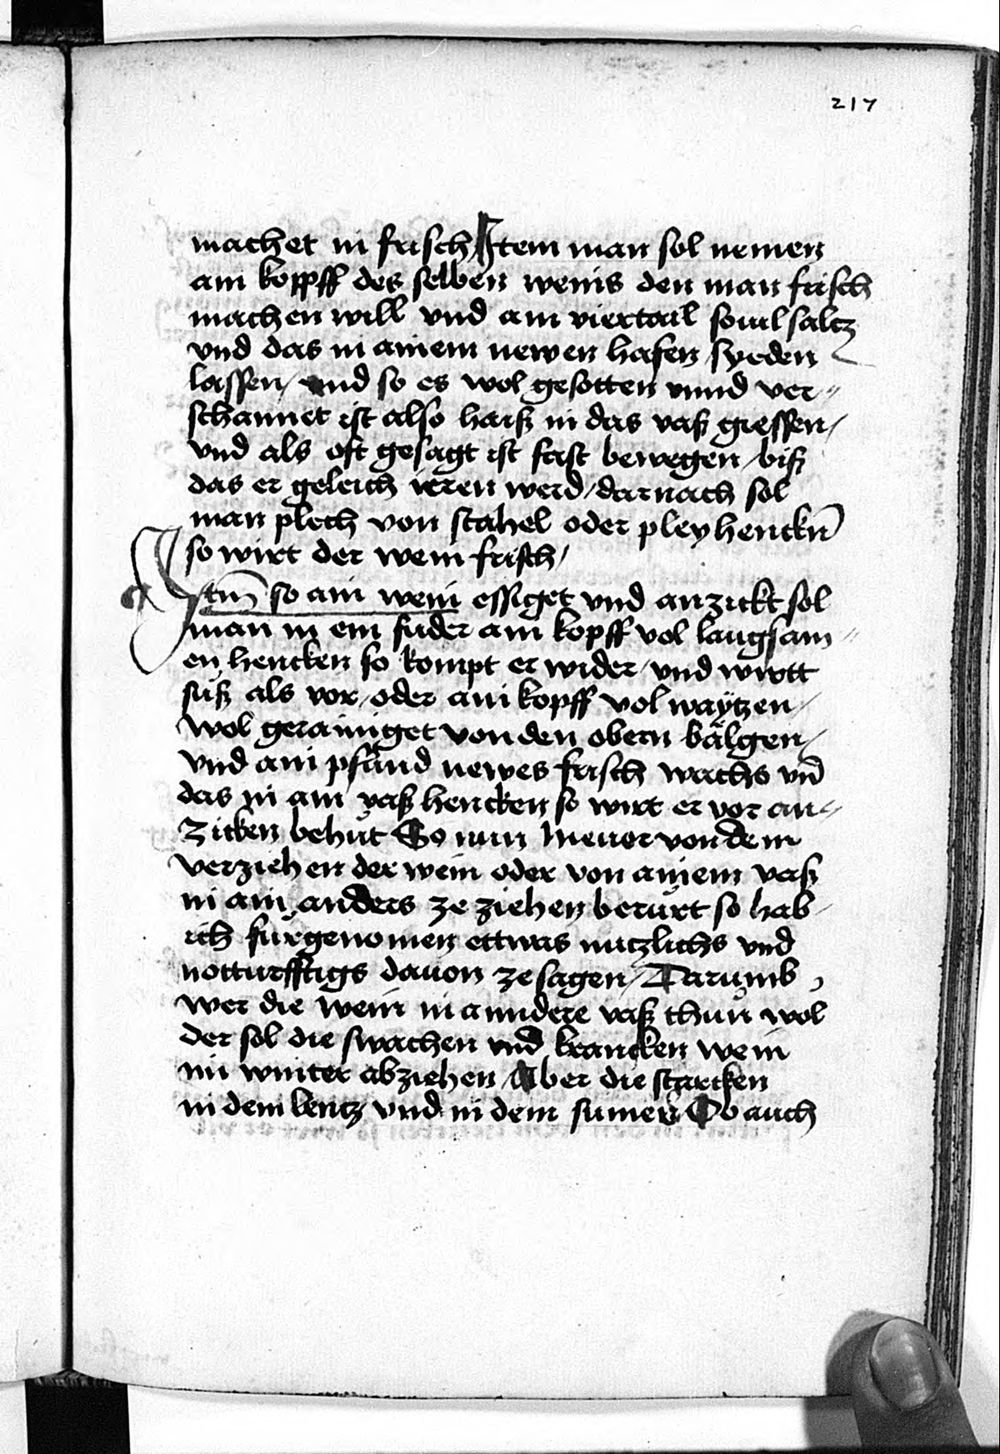 217
machet in frisch Item man sol nemen
ain kopff des selben weins den man frisch
machen will vnd ain viertail souil saltz
vnd das in ainem newen hafen syeden
lassen / vnd so es wol gesotten vnnd ver=
schaumet ist also haiß in das vaß giessen /
vnd als oft gesagt ist fast bewegen / biß
das er geleich ieren werd / darnach sol
man plech von stahel oder pley henckn̄
so wirt der wein frisch /
Itm̄ so ain wein essiget vnd anzickt sol
man in ein fuder ain kopff vol laugsam=
en hencken so kompt er wider / vnd wirtt
süß als vor / oder ain kopff vol waÿtzen /
wol gerainiget von den obern bälgen /
vnd ain pfund newes frisch wachs vn̄
das in ain vaß hencken so wirt er vor an=
zicken behüt So nun hieuor von dem
verziehen der wein oder von ainem vaß
in ain anders ze ziehen berürt so hab
ich fürgenomen ettwas nutzlichs vnd
notturfftigs dauon ze sagen / Darumb
wer die wein in anndere vaß thun wol
der sol die swachen vnd krancken wein
im winter abziehen / Aber die starcken
in dem lentz vnd in dem sumer Ob auch